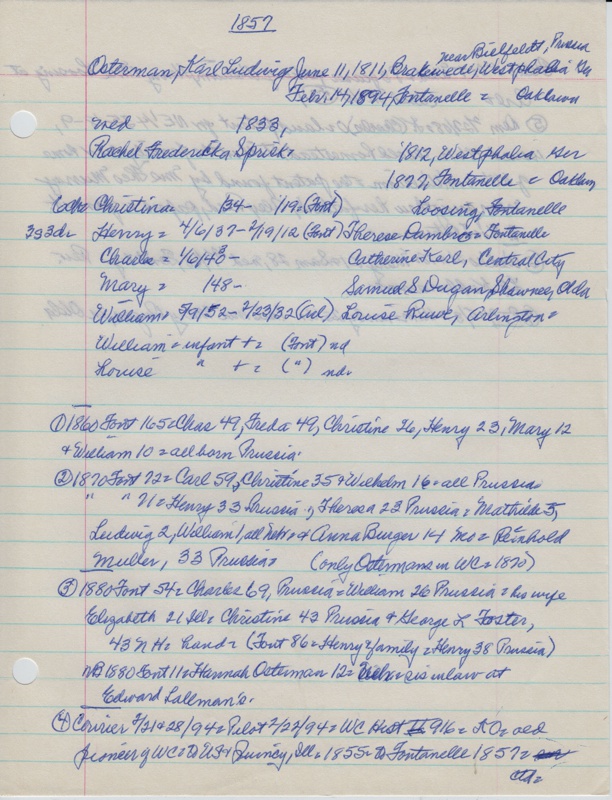 1857
near Bielfeldt, Prussia
Osterman, Karl Ludwig June 11, 1811, Brakwede, Westphalia
Feb. 14, 1894, Fontanelle = Oaklawn
Med 1833,
Rachel Fredericka Sprick. 1812, Westphalia
1877, Fontanelle = Oaklawn
Christina = 134- /19= (Font) Loosing, Fontanelle
Henry = 4/6/37-2/19/12 (Font) Therese Fontanelle
Charles = 1/6/43- Catherine Karl, Central City
Mary = 148- Samuel S. Dugan, Shawnee, Okla
William = 5/9/52-2/23/32 (Arl) Louise Ruwe, Arlington=
William = infant += (Font) nd
Louise " += (") nd.
① 1860 Font 165= Chas 49, Freda 49, Christine 26, Henry 23, Mary 12
+ William 10 = all born Prussia.
② 1870 Font 72= Carl 59, Christine 35 + Wilhelm 16= all Prussia=
" " 71= Henry 33 Prussia, Theresa 23 Prussia= Mathilde 5,
Ludwig 2, William 1, all Neb= + Anna Burger 14 Mo = Reinhold
Muller, 33 Prussia= (only Ostermans in WC= 1870)
③ 1880 Font 54= Charles 69, Prussia= William 26 Prussia= his wife
Elizabeth 21 Ill= Christine 43 Prussia + George L Foster,
43 NH= hand= (Font 86= Henry + family = Henry 38 Prussia)
NB 1880 Font 11= Hannah Osterman 12= Neb= sis in law at
Edward Lallman's.
④ Courier 2/21+28/94= Pilot 2/22/94= WC Hist II 916= KO= old
pioneer of WC= to US+ Quincy, Ill= 1855= to Fontanelle 1857=
ctd=